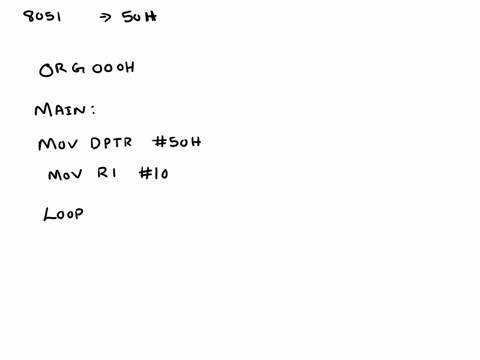 8051 => 50H
ORG 000H
MAIN:
MOV DPTR #50H
MOV R1 #10
LOOP